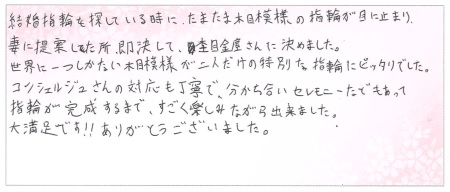 結婚指輪を探している時に、たまたま木目模様の指輪が目に止まり、
妻に提案した所、即決して、杢目金屋さんに決めました。
世界に一つしかない木目模様が二人だけの特別な指輪にピッタリでした。
コンシェルジュさんの対応も丁寧で、分かち合いセレモニーなどもあって
指輪が完成するまで、すごく楽しみながら出来ました。
大満足です!!ありがとうございました。